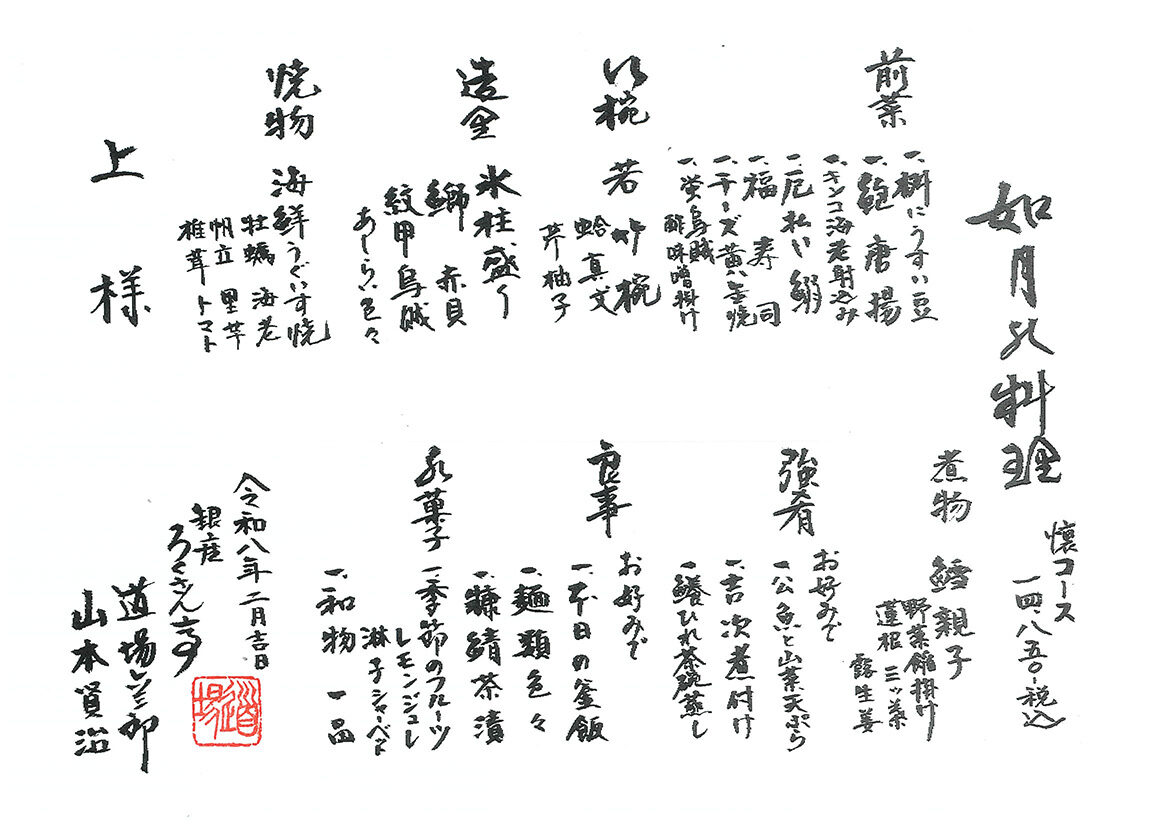 如月の料理
懐コース
一四、八五〇-税込
前菜
一、桝にうすい豆
一、鮑唐揚
一、キンコ海老射込み
一、厄払い鰯
一、福寿司
一、チーズ黄金焼
一、蛍烏賊
酢味噌掛け
吸椀
若竹椀
蛤真丈
芹 柚子
造里
氷柱盛り
鰤 赤貝
紋甲烏賊
あしらい色々
焼物
海鮮うぐいす焼
牡蠣 海老
帆立 里芋
椎茸 トマト
上様
煮物
鱈親子
野菜餡掛け
蓮根 三ッ葉
露生姜
強肴
お好みで
一、公魚と山菜天ぷら
一、吉次煮付け
一、鱶ひれ茶碗蒸し
食事
お好みで
一、本日の釜飯
一、麺類色々
一、糠鯖茶漬
水菓子
一、季節のフルーツ
レモンジュレ
淋子シャーベット
一、和物一品
令和八年二月吉日
銀座
ろくさん亭
道場六三郎
山本賢治
道場